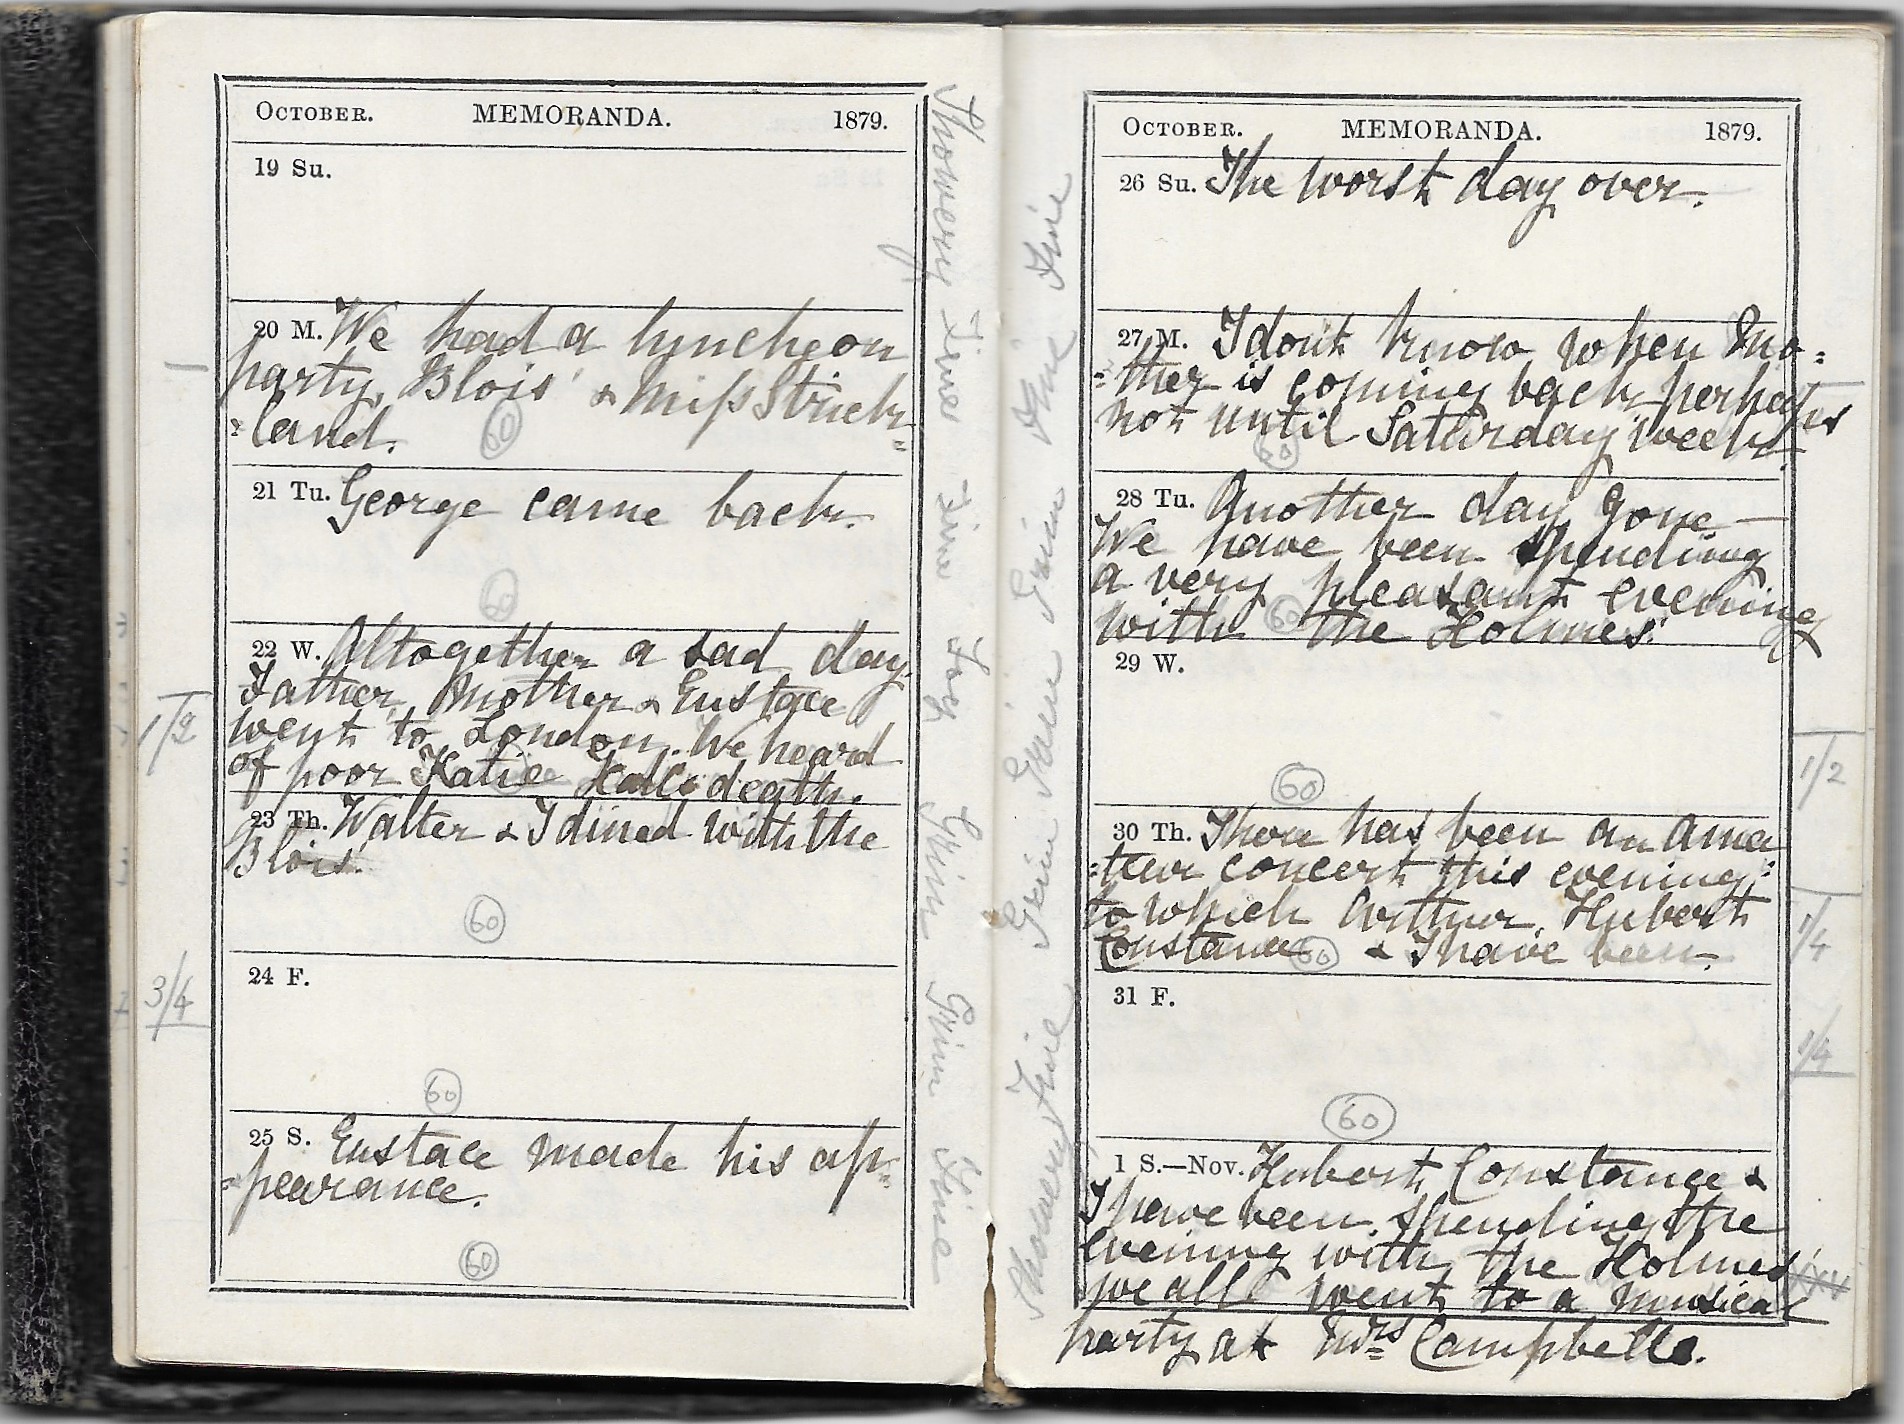 OCTOBER. MEMORANDA. 1879.
19 Su.
20 M. We had a luncheon
party, Blois' & Miss Strick=
=land.
60
21 Tu. George came back.
60
22 W. Altogether a sad day.
Father, Mother & Eustace
went to London. We heard
of poor Katie Hall's death.
23 Th. Walter & I dined with the
Blois'.
60
24 F.
60
25 S. Eustace made his ap=
=pearance.
60
1/2
3/4
Showery Fine Fine Fog Grim Grim Fine
OCTOBER. MEMORANDA. 1879.
26 Su. The worst day over.
27 M. I don't know when Mo=
=ther is coming back perhaps
not until Saturday week.
60
28 Tu. Another day gone —
We have been spending
a very pleasant evening
with the Holmes'.
60
29 W.
60
30 Th. There has been an ama=
=teur concert this evening
to which Arthur, Hubert
Constance & I have been.
60
31 F.
60
1 S.—Nov. Hubert, Constance &
I have been spending the
evening with the Holmes'
we all went to a musical
party at Mrs Campbells.
1/2
1/4
1/4
Showery Fine Grim Grim Grim Fine Fine